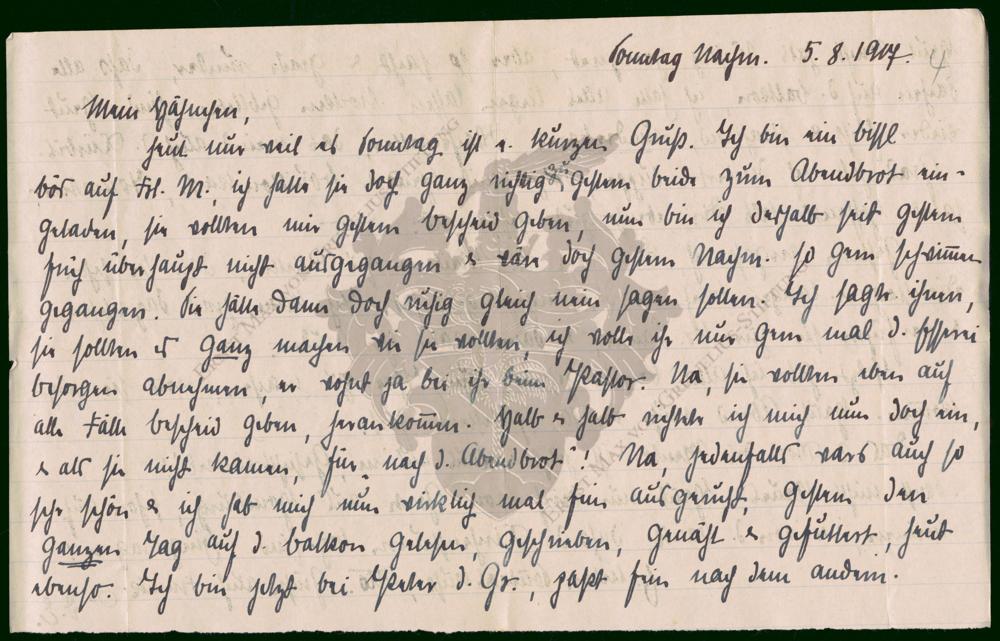 Sonntag Nachm. 5.8.1917.
Mein Hähnchen,
heut nur weil es Sonntag ist e. kurzen Gruß. Ich bin ein bissl
bös auf Frl. M., ich hatte sie doch ganz richtig gestern beide zum Abendbrot ein-
geladen, sie wollten mir gestern bescheid geben, nun bin ich deshalb seit gestern
früh überhaupt nicht ausgegangen & wäre doch gestern Nachm. so gern schwimmen
gegangen. Sie hätte dann doch ruhig gleich nein sagen sollen. Ich sagte ihnen,
sie sollten es ganz machen wie sie wollten, ich wollte ihr nur gern mal d. Esserei
besorgen abnehmen, er wohnt ja bei ihr beim Pastor. Na, sie wollten eben auf
alle Fälle bescheid geben, herankommen. Halb & halb richtete ich mich nun doch ein,
& als sie nicht kamen, für „nach d. Abendbrot"! Na, jedenfalls wars auch so
sehr schön & ich hab mich nun wirklich mal fein ausgeruht, gestern den
ganzen Tag auf d. balkon gelesen, geschrieben, genäht & gefuttert, heut
ebenso. Ich bin jetzt bei Peter d. Gr., hübsch fein nach dem andern.